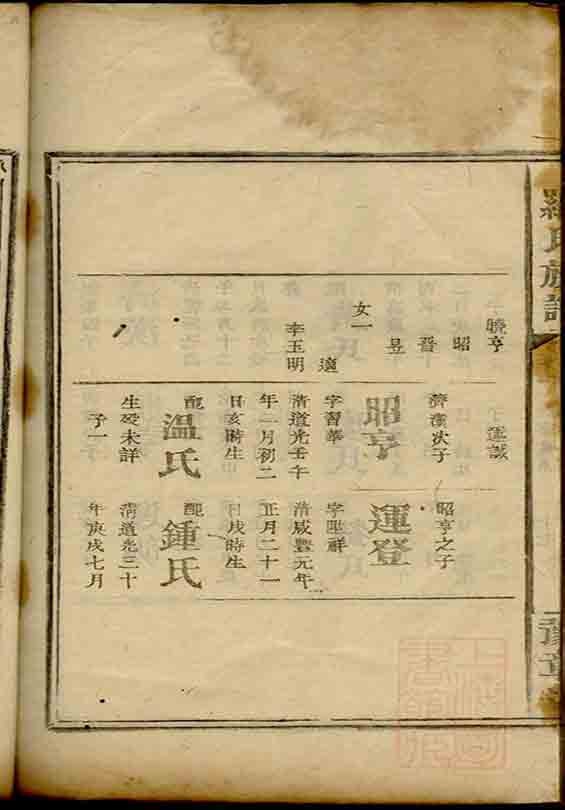 羅氏族譜
豫章
曉亨
昭
晉
昱
女一
適
李玉明
子運誠
濟漢次子
昭亨
字習華
清道光壬午
年一月初二
日亥時生
配溫氏
生歿未詳
子一
昭亨之子
運登
清咸豐元年
正月二十一
日戌時生
配鍾氏
清道光三十
年庚戌七月
上海圖
書館藏